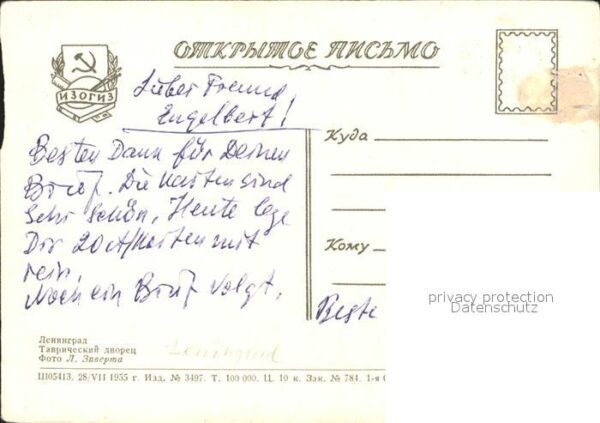 ОТКРЫТОЕ ПИСЬМО
ИЗОГИЗ
Lieber Freund
Engelbert!
Besten Dank für Deinen
Brief. Die Karten sind
sehr schön. Heute lege
Dir 20 Karten mit
rein.
Noch ein Brief folgt.
Beste
Куда
Кому
privacy protection
Datenschutz
Ленинград
Таврический дворец
Фото Л. Зиверта
Leningrad
Ш05413. 28/VII 1955 г. Изд. № 3497. Т. 100 000. Ц. 10 к. Зак. № 784. 1-я